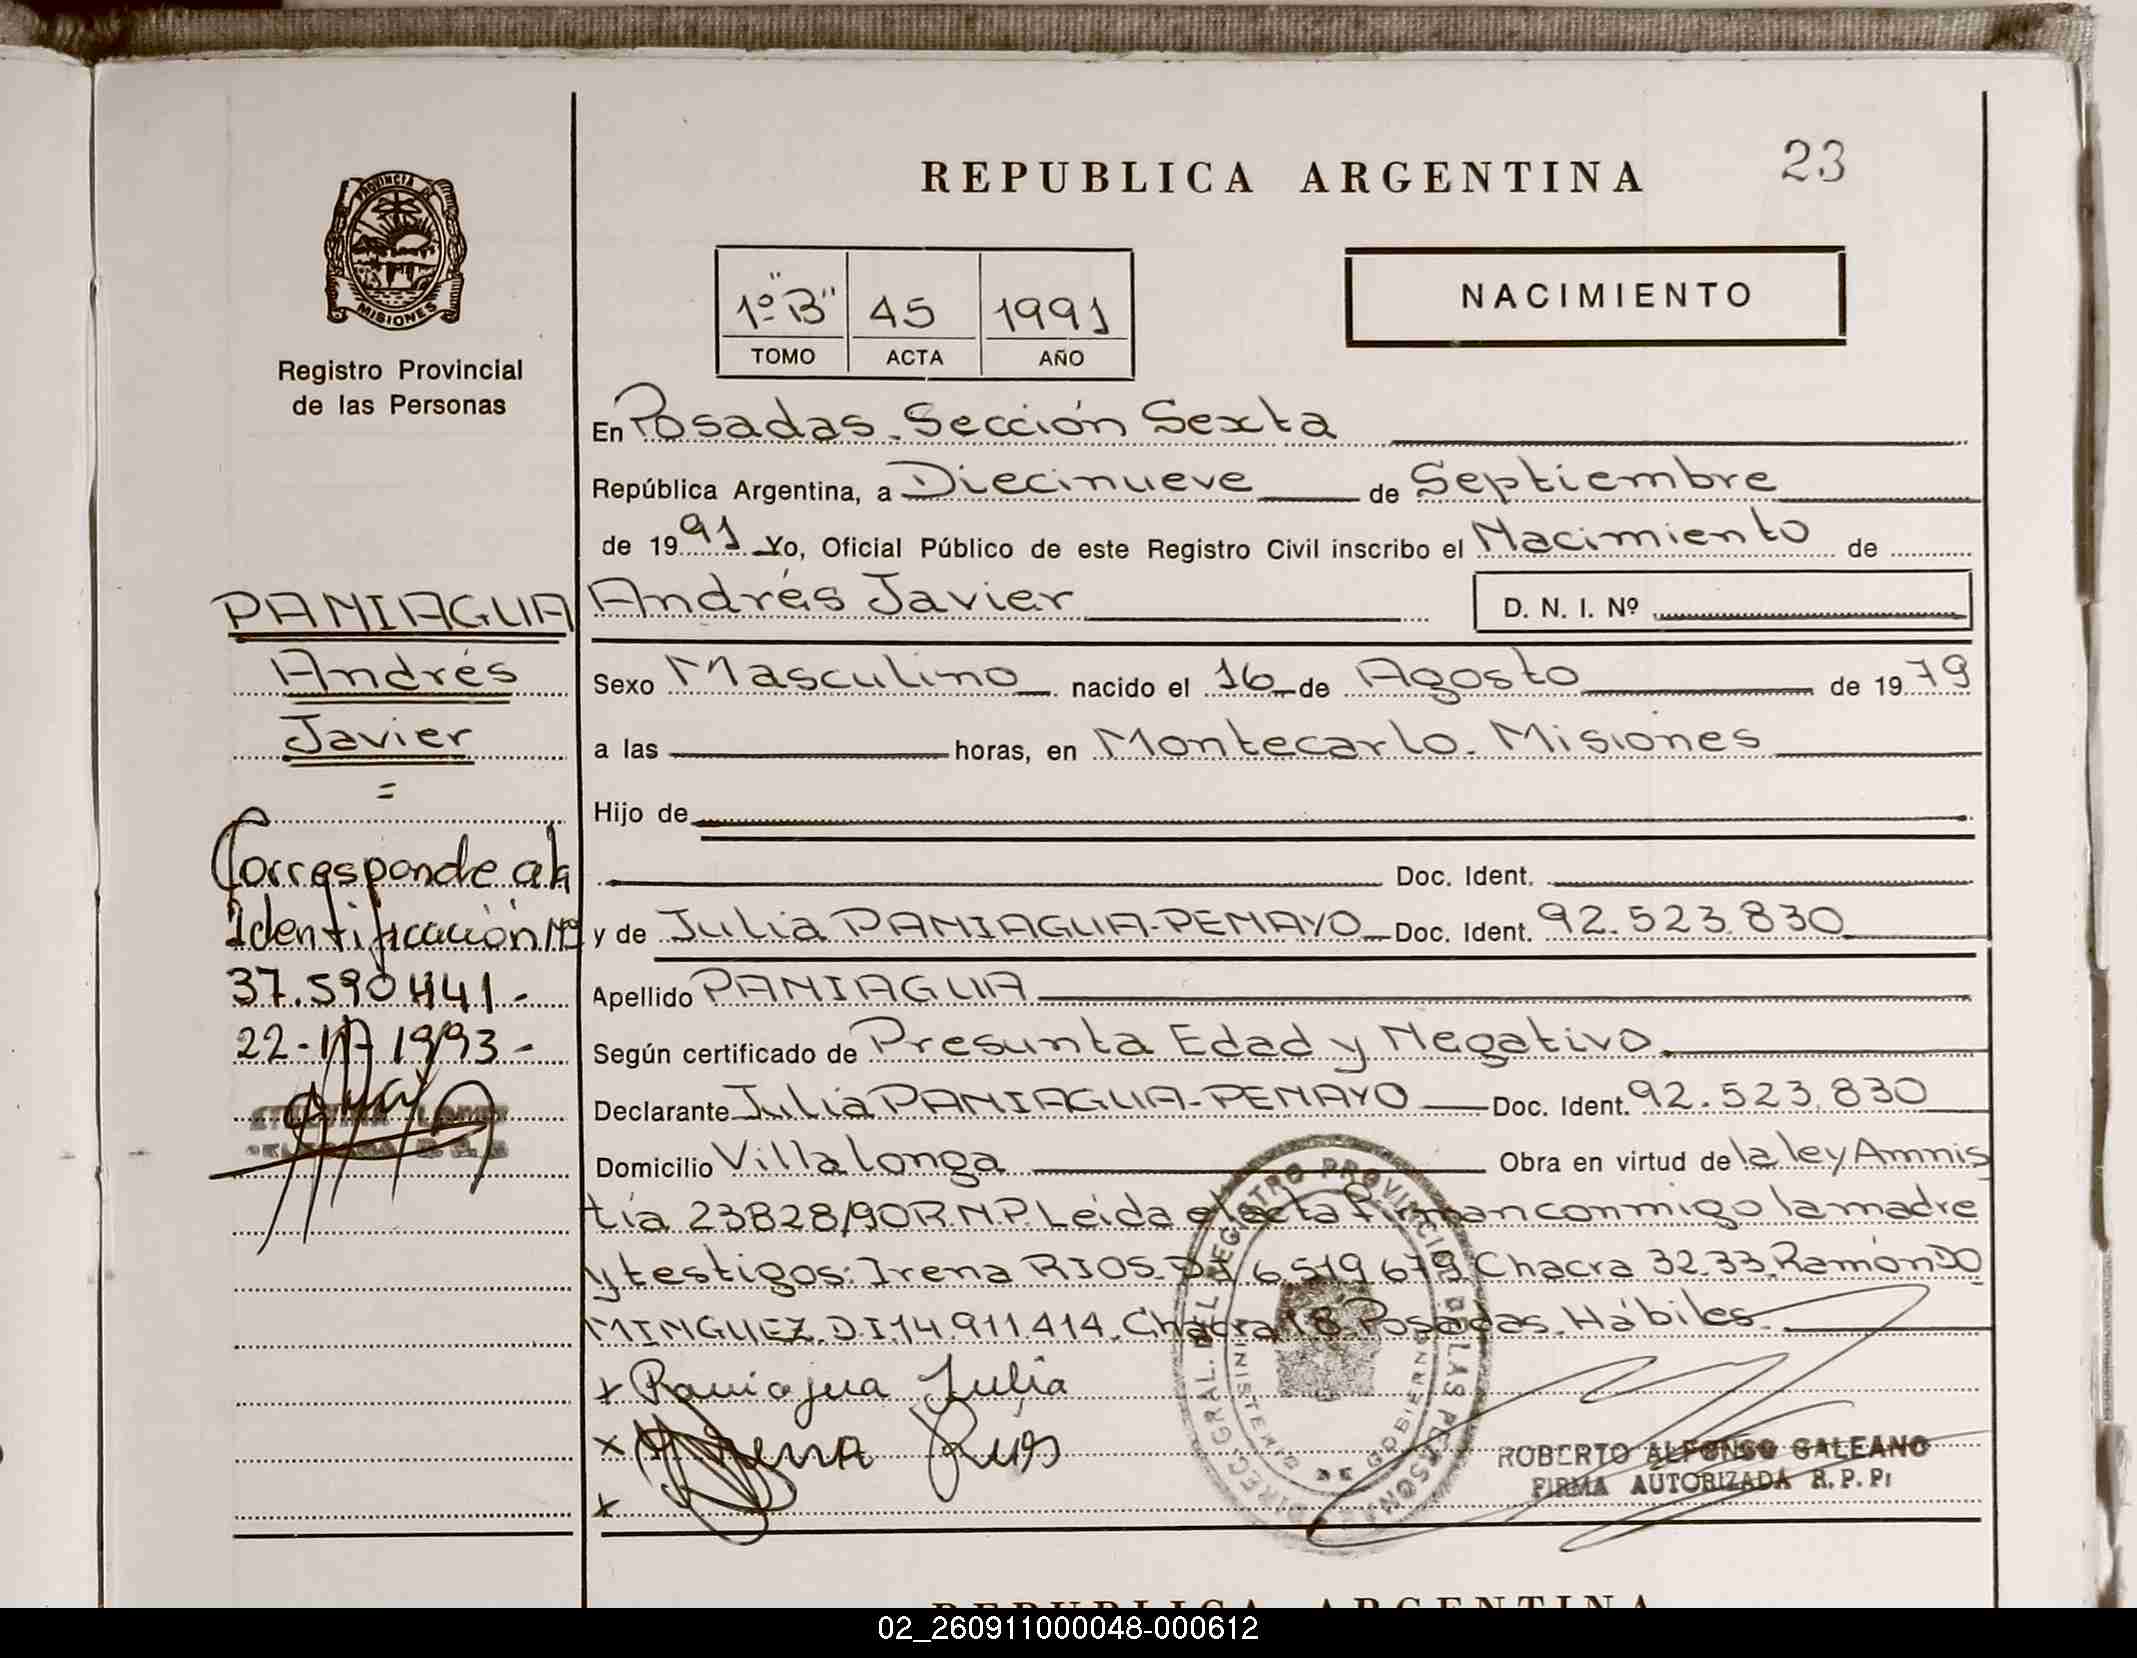 REPUBLICA ARGENTINA
23
PROVINCIA DE
MISIONES
Registro Provincial
de las Personas
1º "B" 45 1991
TOMO ACTA AÑO
NACIMIENTO
En Posadas. Sección Sexta
República Argentina, a Diecinueve de Septiembre
de 1991 Yo, Oficial Público de este Registro Civil inscribo el Nacimiento de
PANIAGUA Andrés Javier
D. N. I. Nº
Andrés
Javier
=
Sexo Masculino nacido el 16 de Agosto de 1979
a las horas, en Montecarlo. Misiones
Hijo de
Doc. Ident.
y de Julia PANIAGUA-PENAYO Doc. Ident. 92.523.830
Apellido PANIAGUA
Según certificado de Presunta Edad y Negativo
Declarante Julia PANIAGUA-PENAYO Doc. Ident. 92.523.830
Domicilio Villalonga Obra en virtud de la ley Amnis
tía 23828/90R.N.P. Leída el acta Firman conmigo la madre
y testigos: Irena RIOS. DI 6.519.679. Chacra 32.33. Ramón DO
MINGUEZ. D.I. 14.911.414. Chacra 18. Posadas. Hábiles
Corresponde a la
Identificación Nº
37.590441.-
22- 1993-
x Paniajua Julia
x Irena Rios
x
DIREC. GRAL. DEL REGISTRO PROVINCIAL DE LAS PERSONAS
MINISTERIO DE GOBIERNO
ROBERTO ALFONSO GALEANO
FIRMA AUTORIZADA R.P.P.
REPUBLICA ARGENTINA
02_260911000048-000612